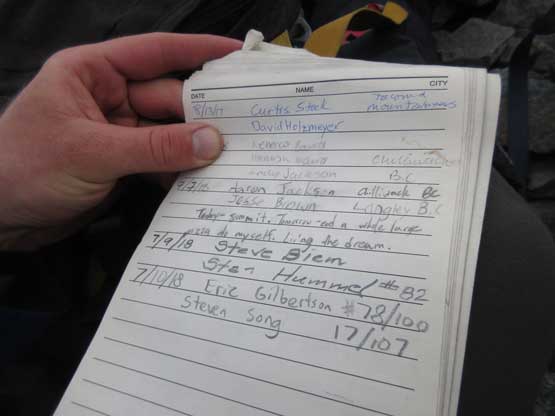 DATE NAME CITY
8/13/17 Curtis Stock Tacoma Mountaineers
David Holzmeyer
Chilliwack
Jackson B.C
7/7/18 Aaron Jackson Chilliwack BC
Jesse Brown Langley B.C
Today - summit. Tomorrow - eat a whole large
pizza to myself. Living the dream.
7/9/18 Steve Biem
Sten Hummel #82
7/10/18 Eric Gilbertson #78/100
Steven Song 17/107